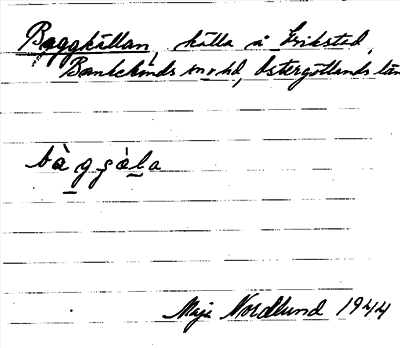 Baggkällan, källa å Erikstad,
Bankekinds sn o hd, Östergötlands län
bàgçàla
Maja Nordlund 1944